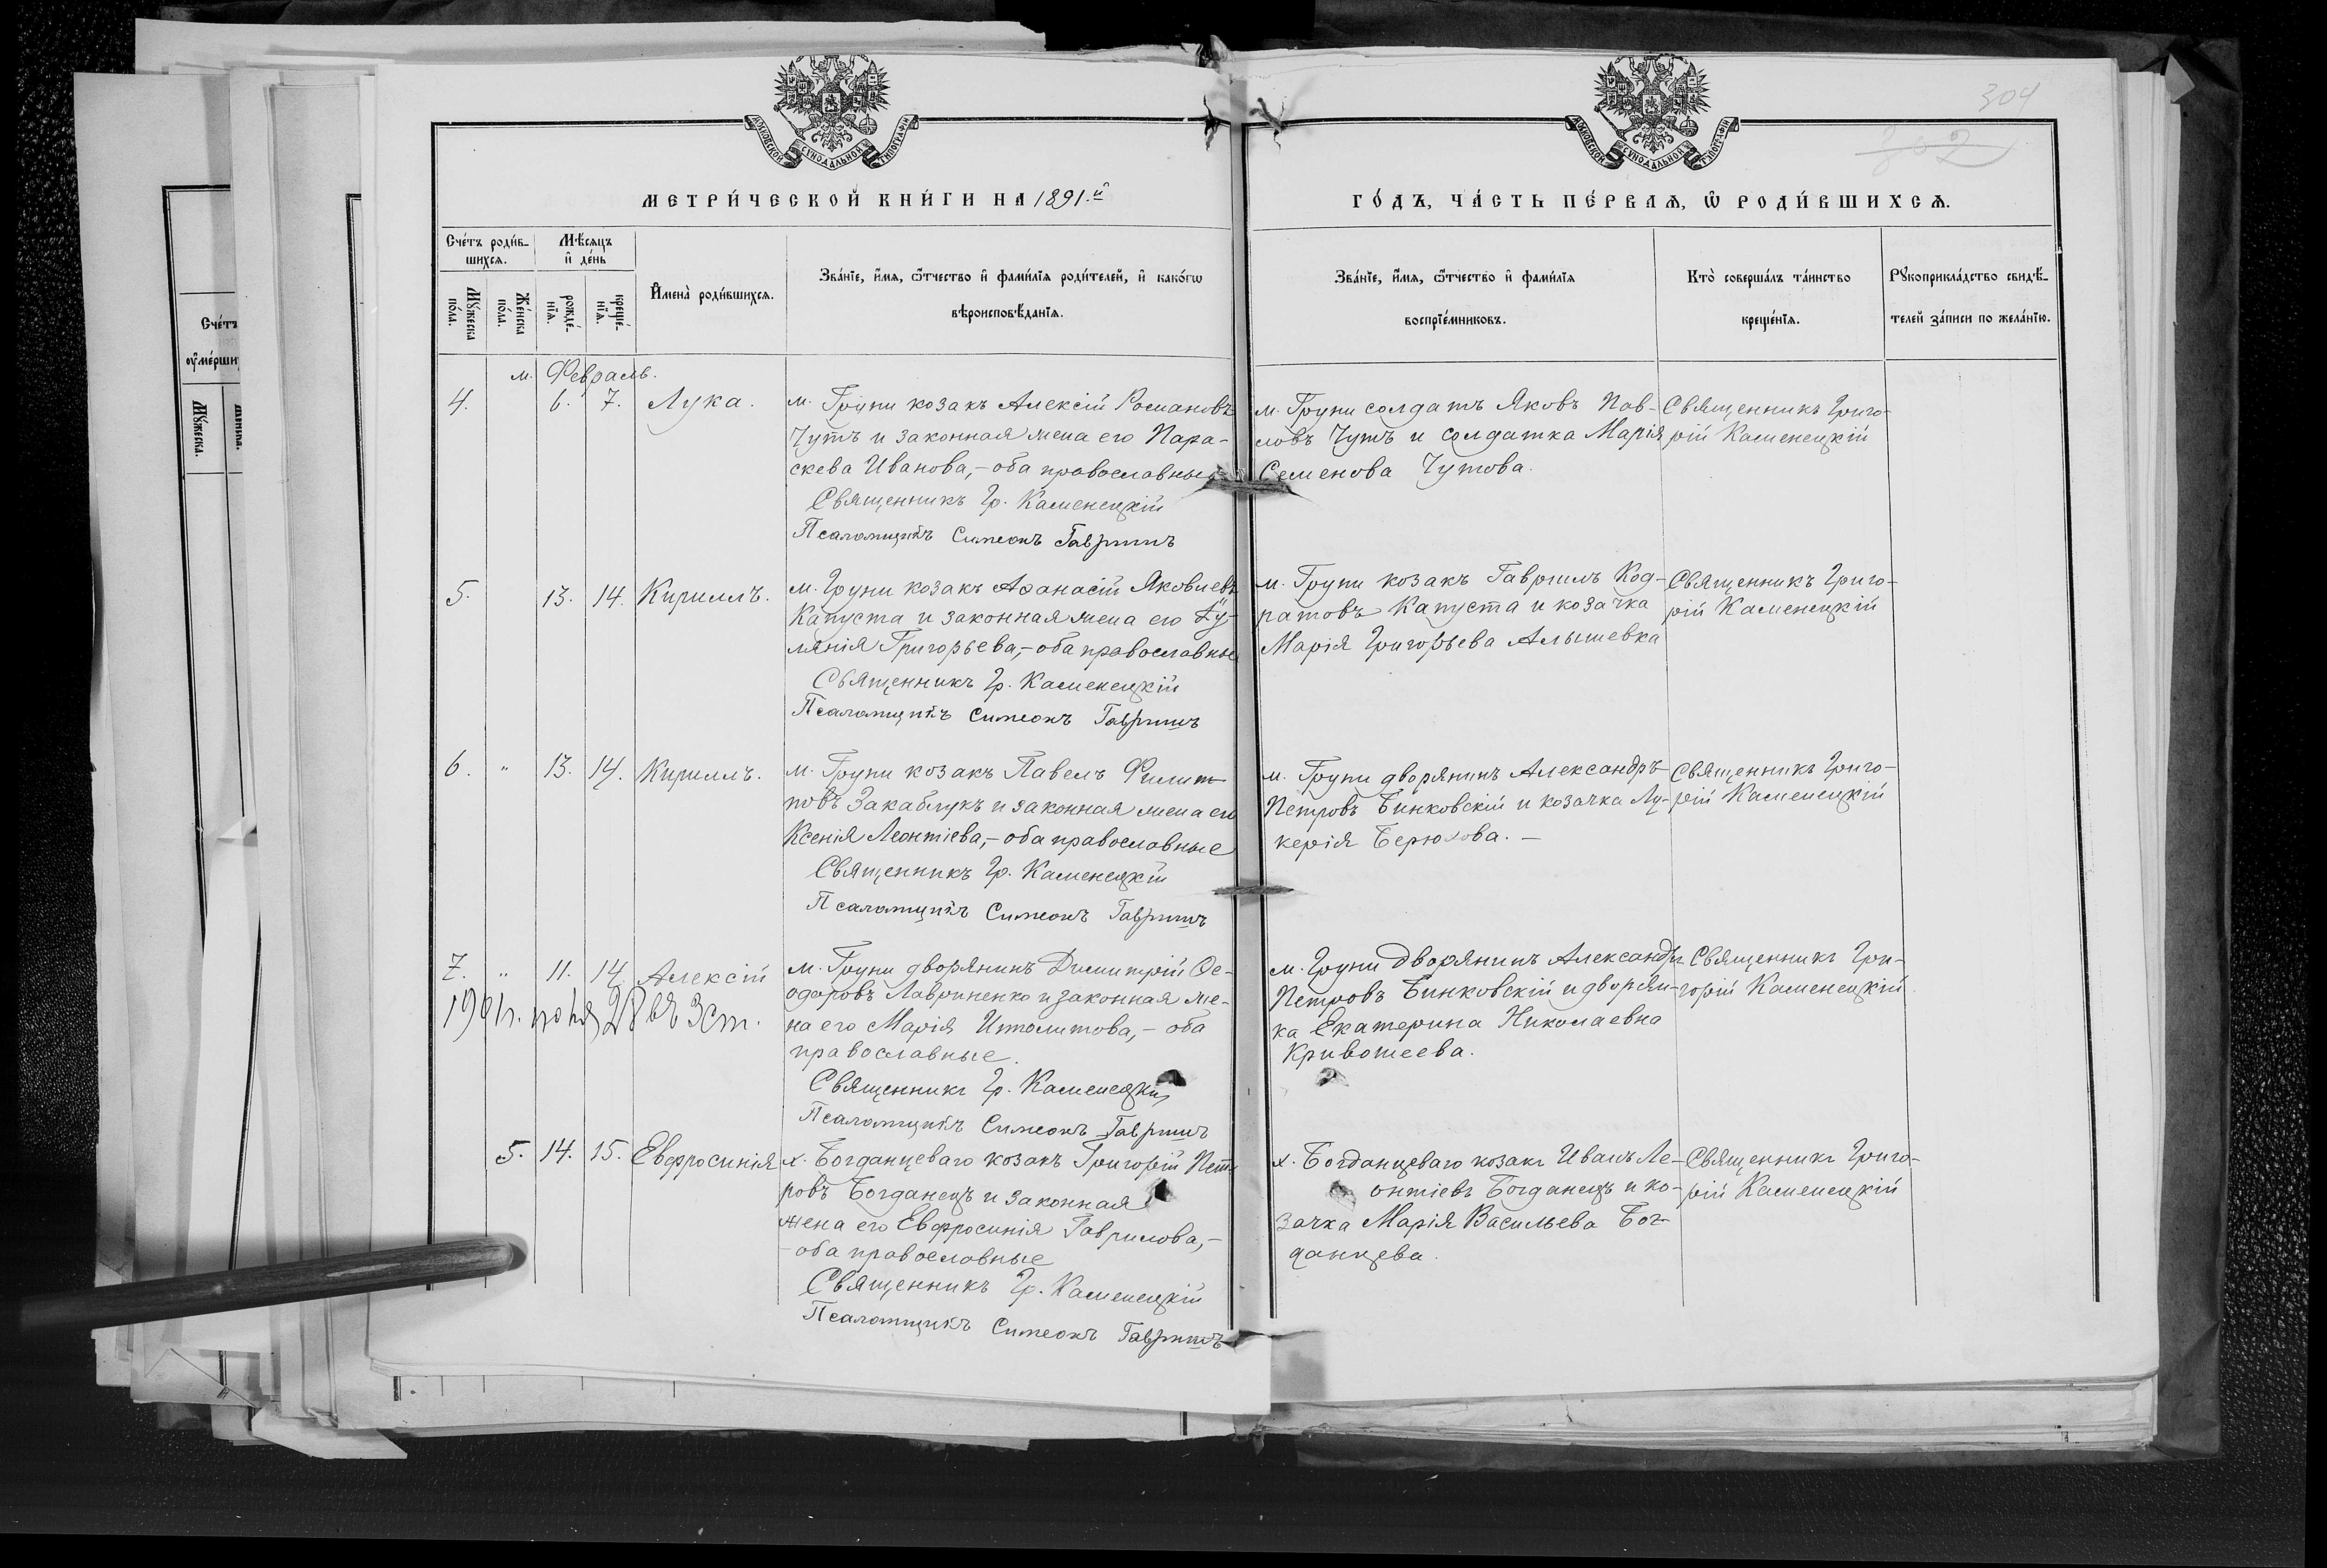 304
302
МОСКОВСКОЙ СУНОДАЛЬНОЙ ТИПОГРАФІИ
МОСКОВСКОЙ СУНОДАЛЬНОЙ ТИПОГРАФІИ
МЕТРИ́ЧЕСКОЙ КНИ́ГИ НА 1891.й
ГО́ДЪ, ЧА́СТЬ ПЕ́РВАѦ, Ѽ РОДИ́ВШИХСѦ.
Сче́тъ роди́в-
шихсѧ.
Мѣ́сѧцъ
и҆ де́нь
Мꙋ́жеска
по́ла.
Же́нска
по́ла.
рожде́-
нїѧ.
креще́-
нїѧ.
И҆мена̀ роди́вшихсѧ.
Зва́нїе, и҆́мѧ, ѻ҆́тчество и҆ фами́лїѧ роди́телей, и҆ како́гѡ
вѣроисповѣ́данїѧ.
Зва́нїе, и҆́мѧ, ѻ҆́тчество и҆ фами́лїѧ
воспрїе́мниковъ.
Кто̀ соверша́лъ та́инство
креще́нїѧ.
Рꙋкоприкла́дство свидѣ́-
телей за́писи по жела́нїю.
Сче́тъ
ѹ҆ме́рши
Мꙋ́жеска.
м. Февраль.
4. 6. 7. Лука.
м. Груни козакъ Алексій Романовъ
Чутъ и законная жена его Пара-
скева Иванова,- оба православные
Священникъ Гр. Каменецкій
Псаломщикъ Симеонъ Гавришъ
м. Груни солдатъ Яковъ Пав-
ловъ Чутъ и солдатка Марія
Семенова Чутова.
Священникъ Григо-
рій Каменецкій
5. 13. 14. Кириллъ.
м. Груни козакъ Аѳанасій Яковлевъ
Капуста и законная жена его Іу-
лянія Григорьева,- оба православные
Священникъ Гр. Каменецкій
Псаломщикъ Симеонъ Гавришъ
м. Груни козакъ Гавріилъ Код-
ратовъ Капуста и козачка
Марія Григорьева Алышевка
Священникъ Григо-
рій Каменецкій
6. " 13. 14. Кириллъ.
м. Груни козакъ Павелъ Филип-
повъ Закаблукъ и законная жена его
Ксенія Леонтіева,- оба православные
Священникъ Гр. Каменецкій
Псаломщикъ Симеонъ Гавришъ
м. Груни дворянинъ Александръ
Петровъ Бинковскій и козачка Лу-
керія Берюхова. -
Священникъ Григо-
рій Каменецкій
7. " 11. 14. Алексій
1901г. 28 въ
м. Груни дворянинъ Димитрій Ѳе-
одоровъ Лавриненко и законная же-
на его Марія Ипполитова,- оба
православные.
Священникъ Гр. Каменецкій
Псаломщикъ Симеонъ Гавришъ
м. Груни дворянинъ Александръ
Петровъ Бинковскій и дворян-
ка Екатерина Николаевна
Кривошеева.
Священникъ Гри-
горій Каменецкій
5. 14. 15. Евфросинія
х. Богданцеваго козакъ Григорій Пет-
ровъ Богданецъ и законная
жена его Евфросинія Гаврилова,-
- оба православные
Священникъ Гр. Каменецкій
Псаломщикъ Симеонъ Гавришъ
х. Богданцеваго козакъ Иванъ Ле-
онтіевъ Богданецъ и ко-
зачка Марія Васильева Бог-
данцева.
Священникъ Григо-
рій Каменецкій